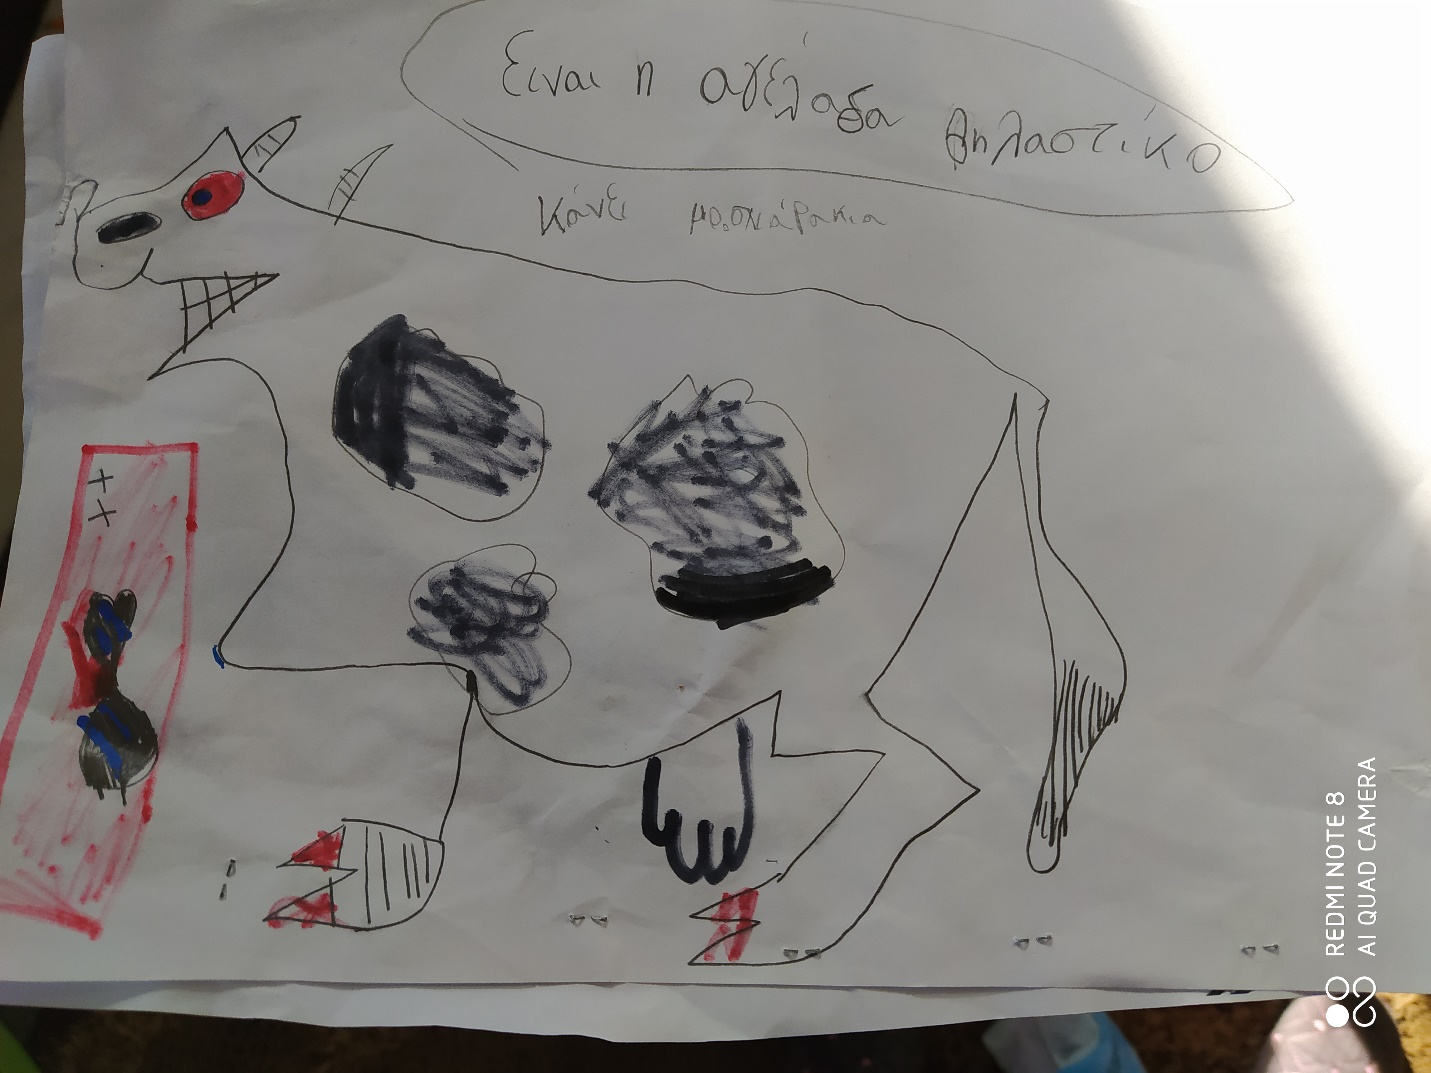 Είναι η αγέλαδα θηλαστίκο
Κάνει μοσχάρακια
REDMI NOTE 8
AI QUAD CAMERA